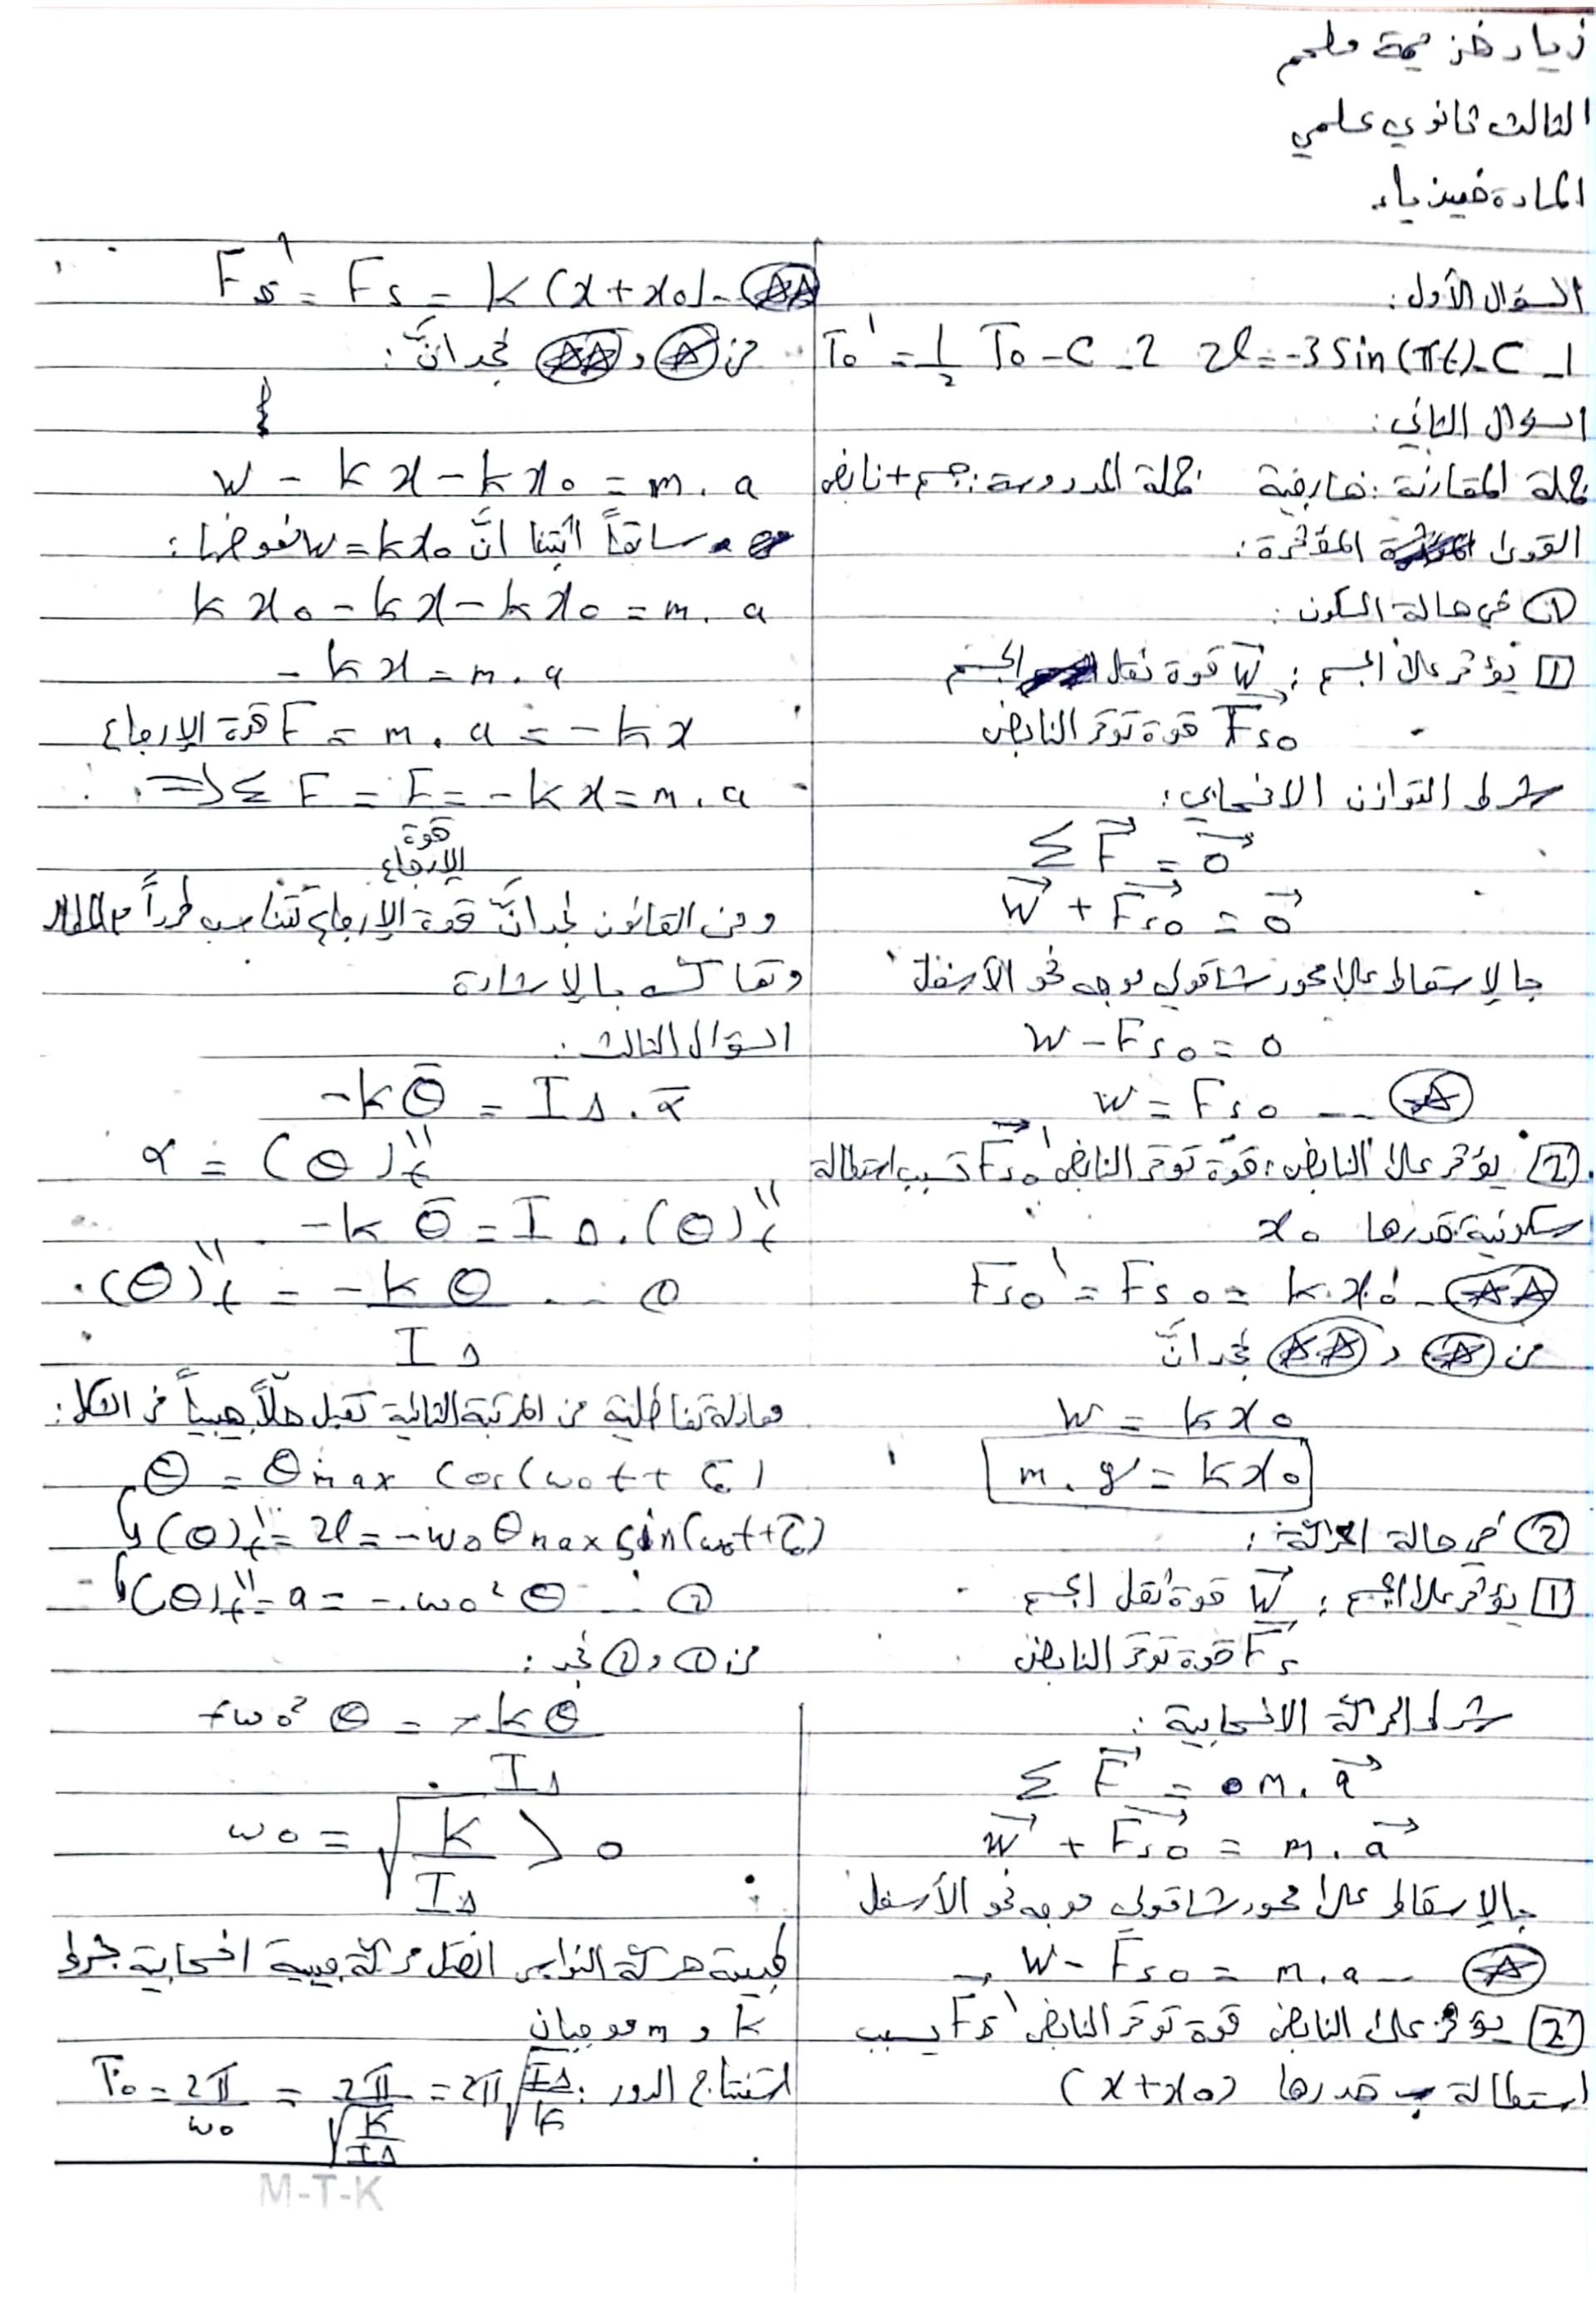 زياد خزيمة ملحم
الثالث ثانوي علمي
المادة فيزياء
السؤال الأول:
1- C - v = -3 sin(πt) 2- C - T₀' = 1/2 T₀
السؤال الثاني:
جملة المقارنة: خارجية جملة المدروسة: جسم + نابض
القوى المؤثرة:
① في حالة السكون:
[1] يؤثر على الجسم: W قوة ثقل الجسم
Fs₀ قوة توتر النابض
شرط التوازن الانسحابي:
Σ F = 0
W + Fs₀ = 0
بالإسقاط على محور شاقولي موجه نحو الأسفل
W - Fs₀ = 0
W = Fs₀ -- (☆)
[2] يؤثر على النابض: قوة توتر النابض Fs₀' تسبب استطالة
سكونية قدرها x₀
Fs₀' = Fs₀ = k.x₀ - (☆☆)
من (☆) و (☆☆) نجد انَّ
W = kx₀
m.g = kx₀
② في حالة الحركة:
[1] يؤثر على الجسم: W قوة ثقل الجسم
Fs قوة توتر النابض
شرط الحركة الانسحابية:
Σ F = m.a
W + Fs₀ = m.a
بالإسقاط على محور شاقولي موجه نحو الأسفل
W - Fs₀ = m.a -- (☆)
[2] يؤثر على النابض قوة توتر النابض Fs' يسبب
استطالة قدرها (x+x₀)
Fs' = Fs = k(x+x₀) - (☆☆)
من (☆) و (☆☆) نجد انَّ:
W - kx - kx₀ = m.a
سابقاً أثبتنا انَّ W = kx₀ نعوضها:
kx₀ - kx - kx₀ = m.a
- kx = m.a
F = m.a = -kx قوة الإرجاع
Σ F = F = -kx = m.a
قوة
الإرجاع
ومن القانون نجد انَّ قوة الإرجاع تتناسب طرداً مع المطال
وتعاكسه بالإشارة
السؤال الثالث:
-kθ̄ = I∆.ᾱ
α = (θ)t''
-kθ̄ = I∆.(θ)t''
(θ)t'' = -kθ/I∆ -- ①
معادلة تفاضلية من المرتبة الثانية تقبل حلاً جيبياً من الشكل:
θ = θmax cos(ω₀t + φ̄)
(θ)t' = v = -ω₀θmax sin(ω₀t+φ̄)
(θ)t'' = a = -ω₀²θ -- ②
من ① و ② نجد:
+ω₀²θ = +kθ/I∆
ω₀ = √(k/I∆) > 0
طبيعة حركة النواس الفتل حركة جيبية انسحابية بشرط
k و m موجبان
استنتاج الدور: T₀ = 2π/ω₀ = 2π/√(k/I∆) = 2π√(I∆/k)
M-T-K